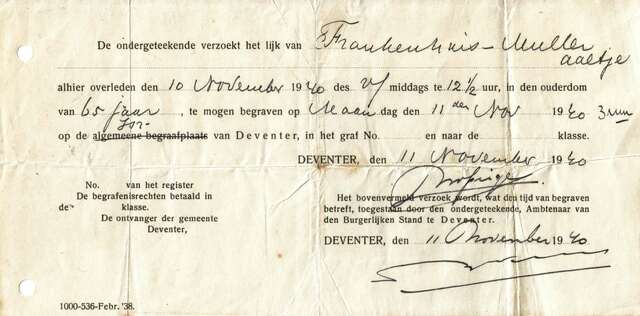 De ondergeteekende verzoekt het lijk van Frankenhuis-Muller
Aaltje
alhier overleden den 10 November 1940 des v/ middags te 12 1/2 uur, in den ouderdom
van 65 jaar, te mogen begraven op Maandag den 11den Nov 1940 3 uur
Isr.
op de algemeene begraafplaats van Deventer, in het graf No. en naar de klasse.
DEVENTER, den 11 November 1940
No. van het register
De begrafenisrechten betaald in
de klasse.
De ontvanger der gemeente
Deventer,
Het bovenvermeld verzoek wordt, wat den tijd van begraven
betreft, toegestaan door den ondergeteekende, Ambtenaar van
den Burgerlijken Stand te Deventer.
DEVENTER, den 11 November 1940
1000-536-Febr. '38.